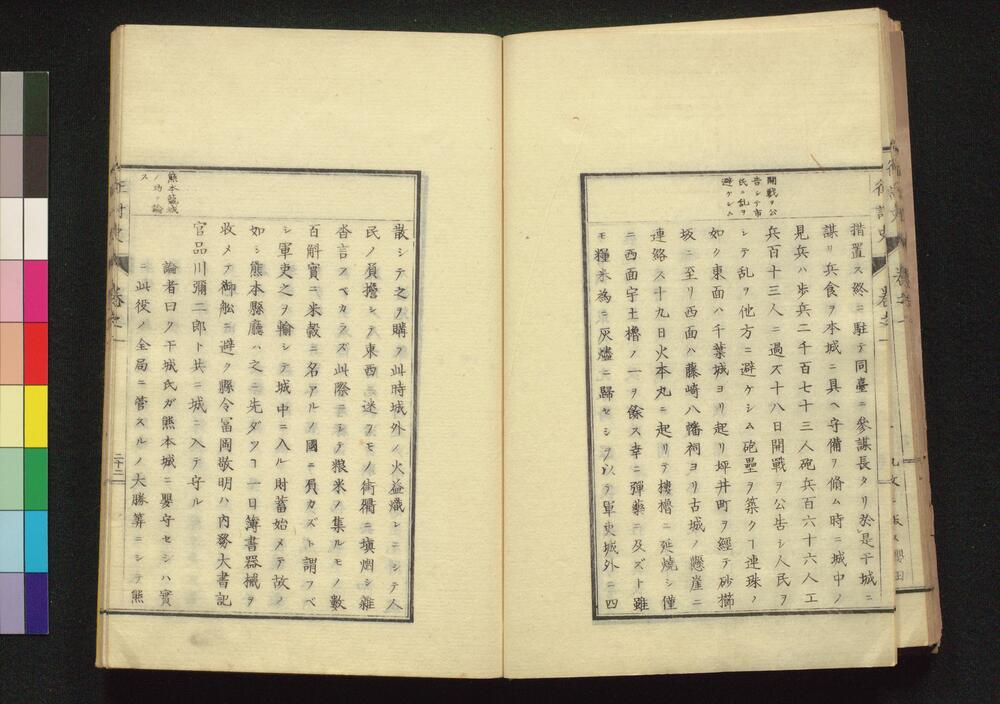 開戦ヲ公
告シテ市
民ニ乱ヲ
避ケシム
措置ス終ニ駐テ同臺ニ參謀長タリ於是干城ニ
謀リ兵食ヲ本城ニ具ヘ守備ヲ脩ム時ニ城中ノ
見兵ハ歩兵二千百七十三人砲兵百六十六人工
兵百十三人ニ過ズ十八日開戰ヲ公告シ人民ヲ
シテ乱ヲ他方ニ避ケシム砲壘ヲ築クヿ連珠ノ
如ク東面ハ千葉城ヨリ起リ坪井町ヲ經テ砂櫛
坂ニ至リ西面ハ藤崎八幡祠ヨリ古城ノ懸崖ニ
連絡ス十九日火本丸ニ起リテ樓櫓ニ延燒シ僅
ニ西面宇土櫓ノ一ヲ餘ス幸ニ彈藥ニ及ズト雖
モ糧米為ニ灰燼ニ歸セシヲ以テ軍吏城外ニ四
散シテ之ヲ購フ此時城外ノ火益熾レニシテ人
民ノ負擔シテ東西ニ迷フモノ街衢ニ塡咽シ雜
沓言フベカラズ此際ニシテ粮米ノ集ルモノ數
百斛實ニ米穀ニ名アルノ國ニ負カズト謂フベ
シ軍吏之ヲ輸シテ城中ニ入ル財蓄始メテ故ノ
如シ熊本縣廳ハ之ニ先ダツヿ一日簿書器械ヲ
收メテ御舩ニ避ク縣令冨岡敬明ハ内務大書記
官品川彌二郎ト共ニ城ニ入テ守ル
熊本籠城
ノ功ヲ論
ス
論者曰ク干城氏ガ熊本城ニ嬰守セシハ實
ニ此役ノ全局ニ管スルノ大勝算ニシテ熊
征討史
卷之一
二十二